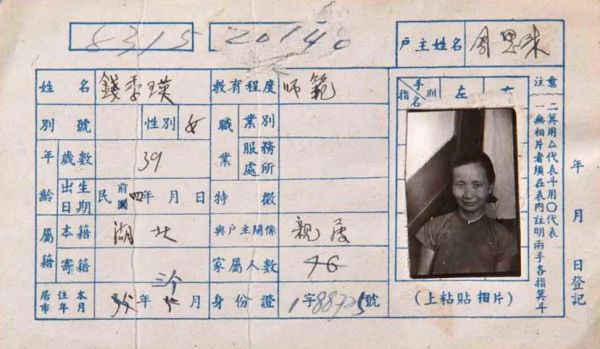 5315 20140 戶主姓名
姓名 錢季瑛 教育程度 師範
別號 性別 女 職業 業別
年齡 歲數 39 服務處所
出生日期 民前國四年 月 日 特徵
屬籍 本籍 湖北 與戶主關係 親屬
寄籍 家屬人數
居住本市年月 年 月 身份證 字 號
指名 手別 左 右
(上粘貼相片)
注意
一無相片者須在表內註明兩手各指箕斗
二箕用△代表斗用〇代表
年 月 日登記